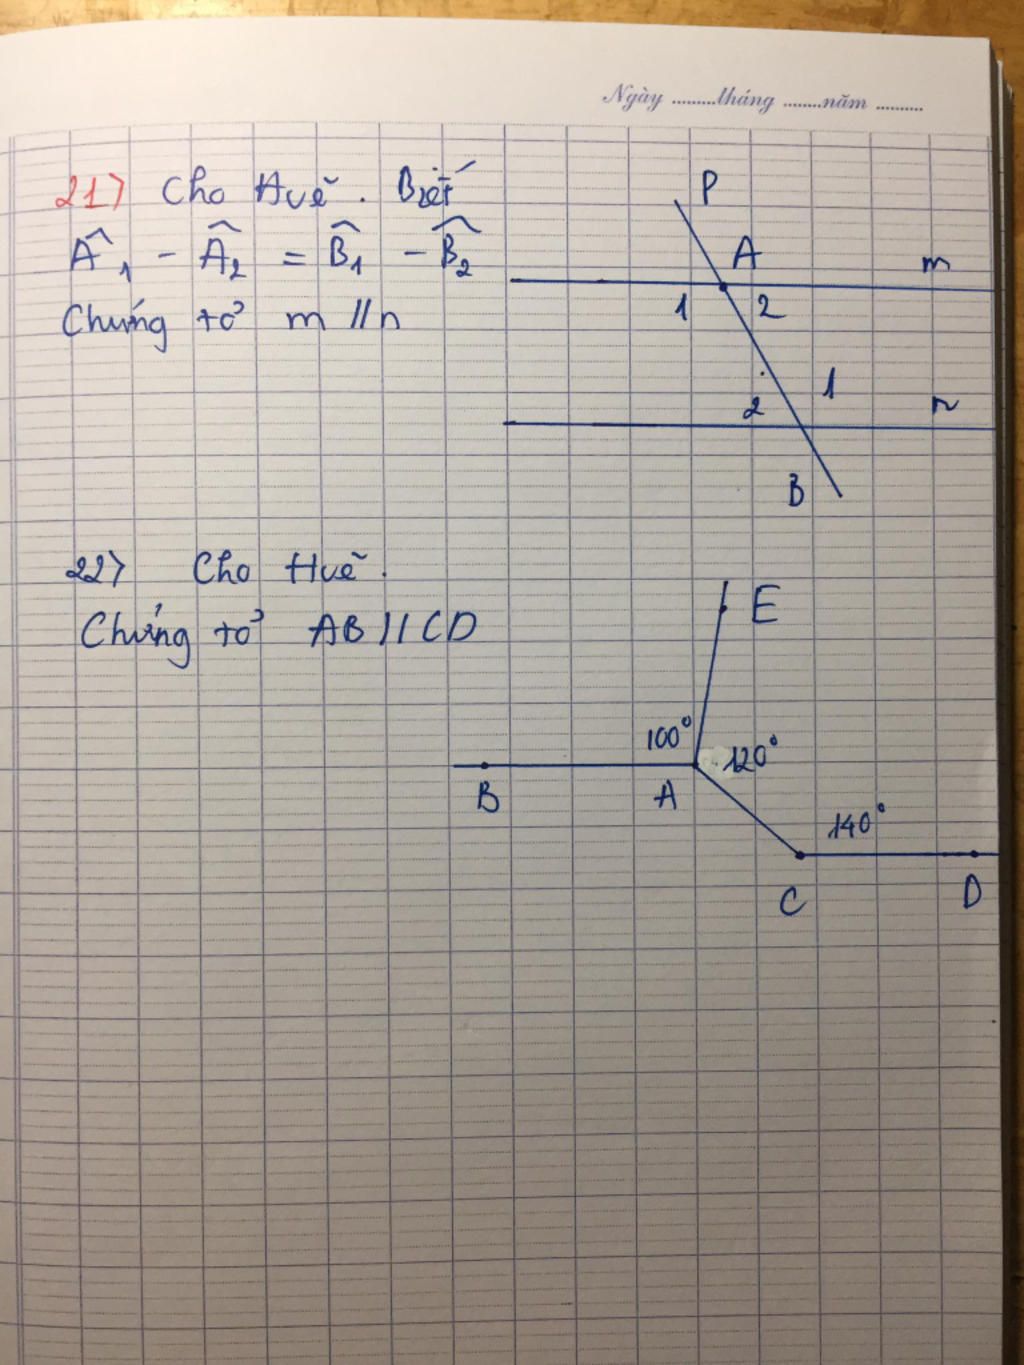 Ngày .........tháng .......năm .........
21) Cho Hvẽ. Biết
Â₁ - Â₂ = B̂₁ - B̂₂
Chứng tỏ m // n
P
A
m
1 2
1
2
n
B
22) Cho Hvẽ.
Chứng tỏ AB // CD
E
100°
120°
B
A
140°
C
D